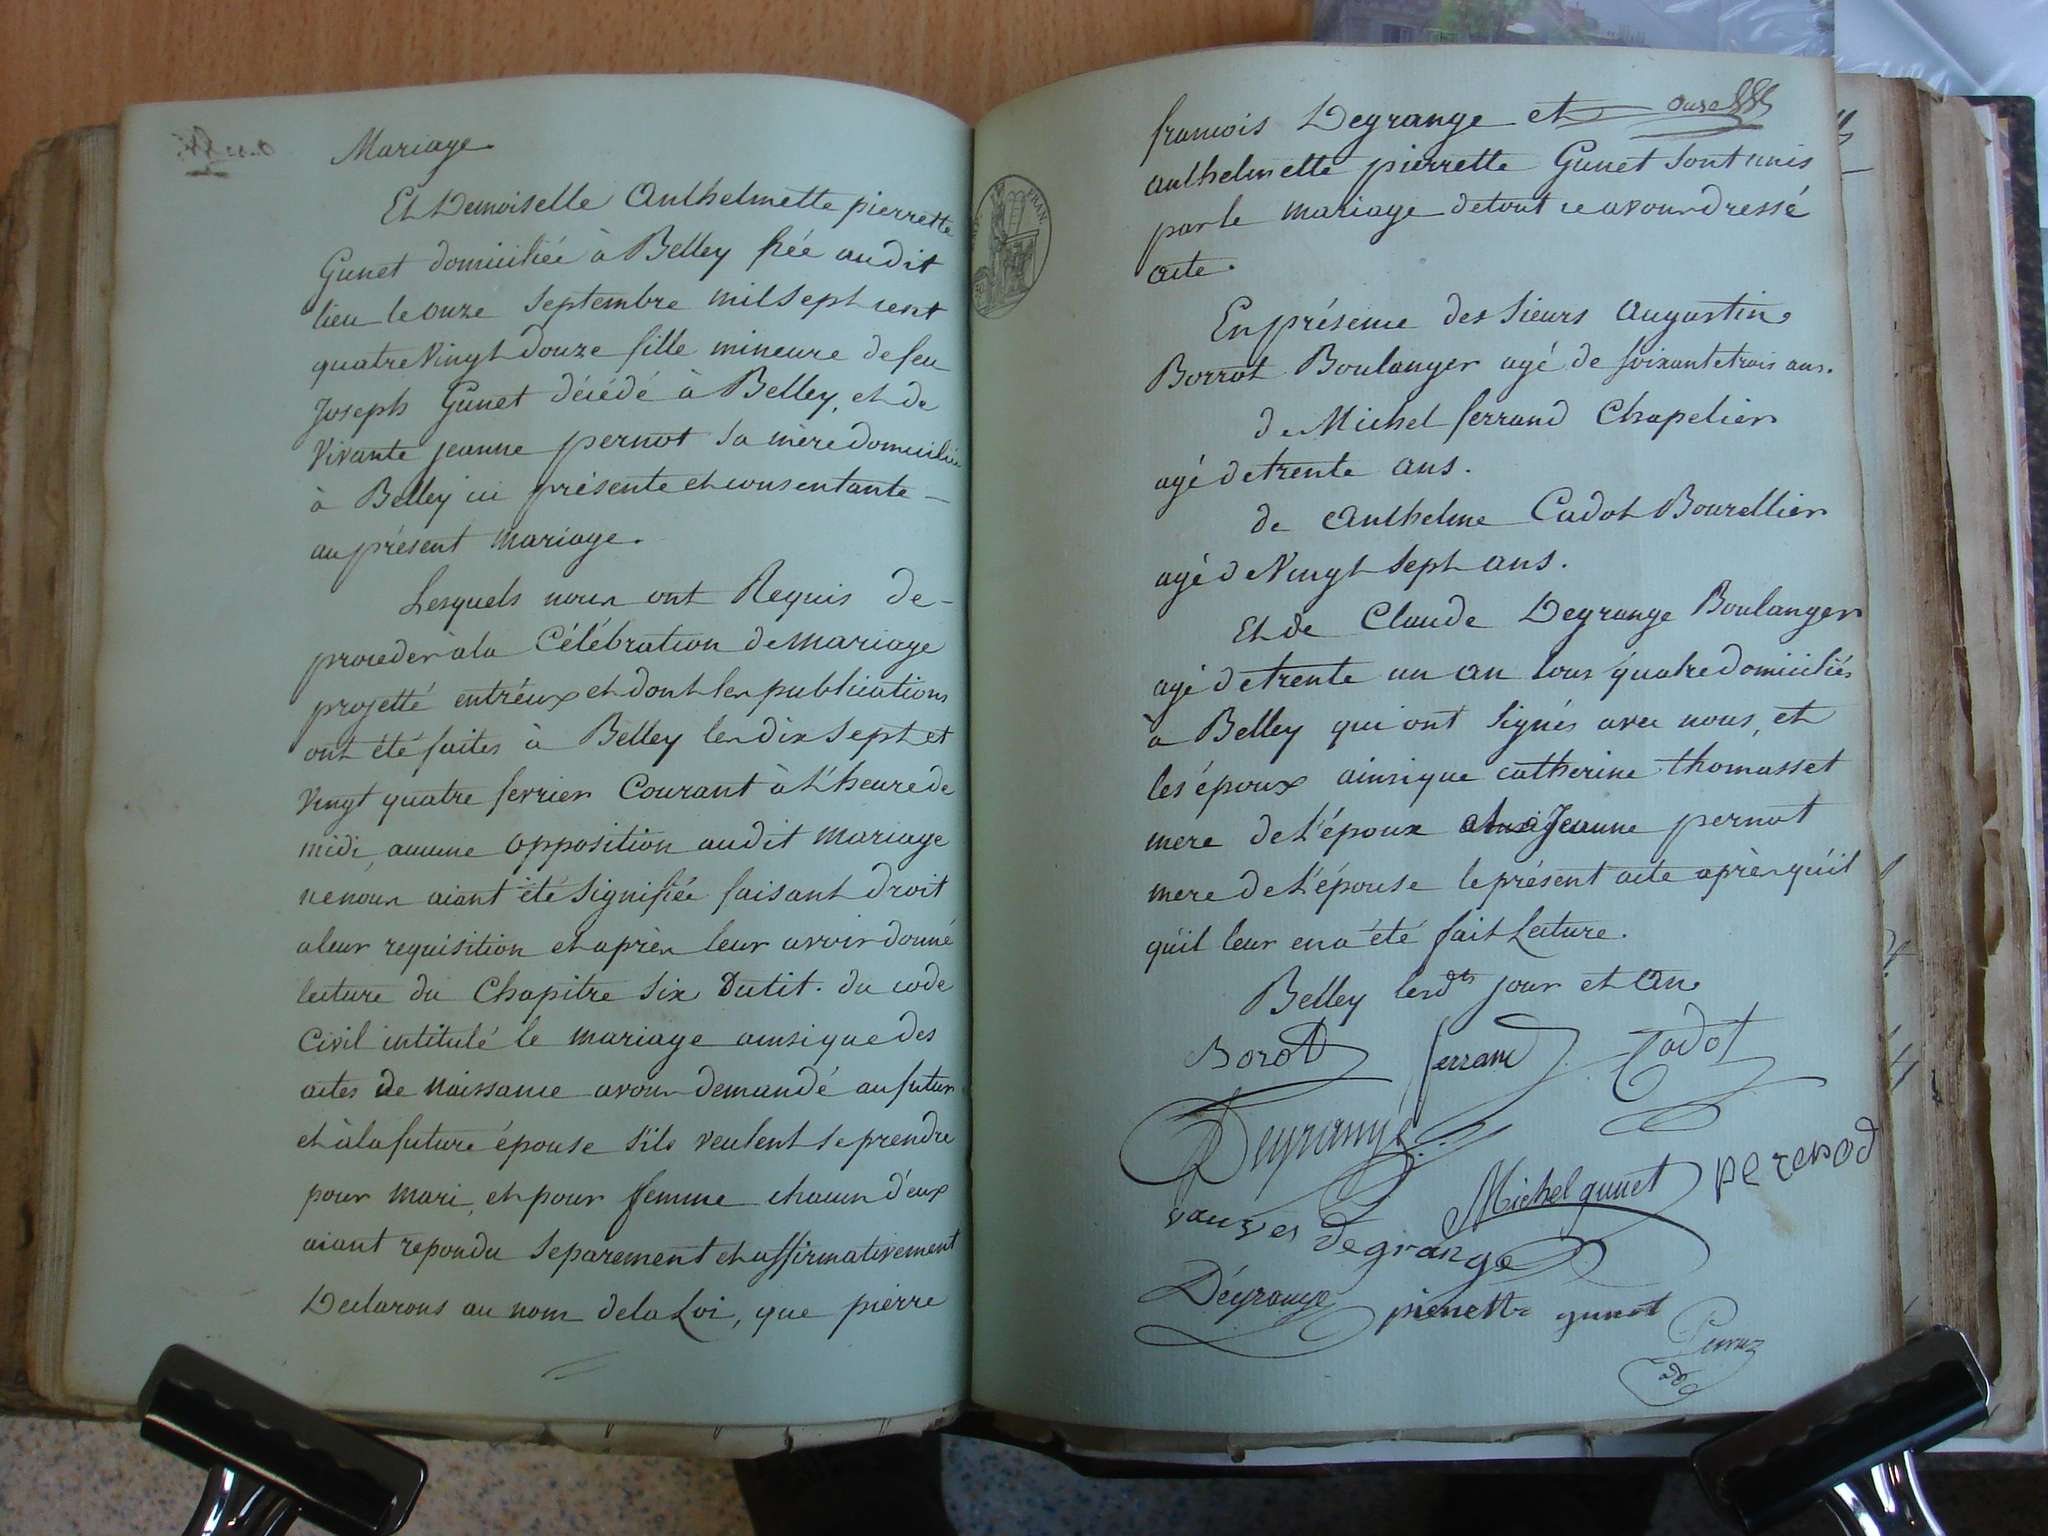 Mariage
Et Demoiselle Anthelmette pierrette
Gunet domiciliée à Belley Née audit
lieu le onze septembre mil sept cent
quatre Vingt douze fille mineure de feu
Joseph Gunet décédé à Belley, et de
Vivante jeanne pernot sa mère domiciliée
à Belley ici présente et consentante
au présent mariage.
Lesquels nous ont Requis de
proceder à la Célébration de mariage
projetté entr'eux et dont les publications
ont été faites à Belley les dix sept et
Vingt quatre fevrier Courant à L'heure de
midi, aucune opposition audit mariage
ne nous aiant été signifiée faisant droit
a leur requisition et après leur avoir donné
lecture du Chapitre six Du tit. du code
Civil intitulé le mariage ainsi que des
actes de Naissance avons demandé au futur
et à la future épouse s'ils veulent se prendre
pour mari, et pour femme chacun d'eux
aiant repondu separement et affirmativement
Declarons au nom de la Loi, que pierre
francois Degrange et
anthelmette pierrette Gunet sont unis
par le mariage de tout ce avons dressé
acte.
En présence des Sieurs Augustin
Borrot Boulanger agé de soixante trois ans.
de Michel ferrand Chapelier
agé de trente ans.
de Anthelme Cadot Bourellier
agé de Vingt sept ans.
Et de Claude Degrange Boulanger
agé de trente un an tous quatre domiciliés
à Belley qui ont signés avec nous, et
les époux ainsi que catherine thomasset
mere de L'époux Jeanne pernot
mere de L'épouse le présent acte après qu'il
qu'il leur en a été fait Lecture.
Belley les dts jour et an
Borot ferrand Cadot
Degrange
Michel gunet perenod
degrange
Dégrange pierrette gunet